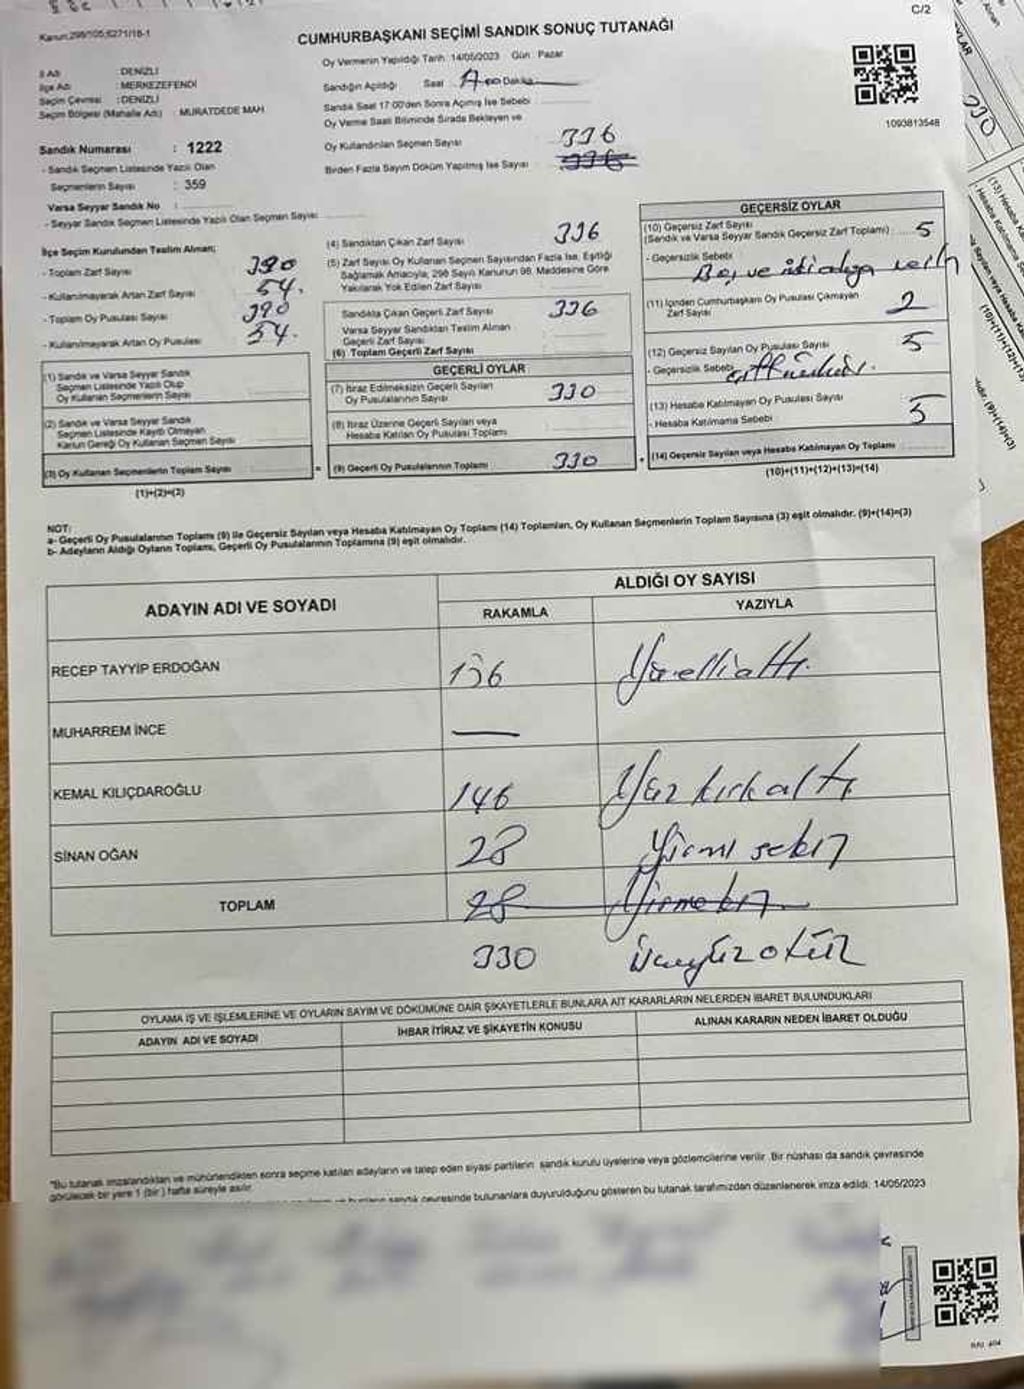 C/2
Kanun:298/105;6271/18-1
CUMHURBAŞKANI SEÇİMİ SANDIK SONUÇ TUTANAĞI
Oy Vermenin Yapıldığı Tarih: 14/05/2023 Gün: Pazar
İl Adı : DENİZLİ
İlçe Adı : MERKEZEFENDİ
Seçim Çevresi : DENİZLİ
Seçim Bölgesi (Mahalle Adı) : MURATDEDE MAH
Sandığın Açıldığı Saat Dakika
Sandık Saat 17:00'den Sonra Açılmış İse Sebebi
Oy Verme Saati Bitiminde Sırada Bekleyen ve
Oy Kullandırılan Seçmen Sayısı 336
Birden Fazla Sayım Döküm Yapılmış İse Sayısı 336
1093813548
Sandık Numarası : 1222
- Sandık Seçmen Listesinde Yazılı Olan
Seçmenlerin Sayısı : 359
Varsa Seyyar Sandık No :
- Seyyar Sandık Seçmen Listesinde Yazılı Olan Seçmen Sayısı:
İlçe Seçim Kurulundan Teslim Alınan;
- Toplam Zarf Sayısı 390
- Kullanılmayarak Artan Zarf Sayısı 54.
- Toplam Oy Pusulası Sayısı 390
- Kullanılmayarak Artan Oy Pusulası 54.
(1) Sandık ve Varsa Seyyar Sandık
Seçmen Listesinde Yazılı Olup
Oy Kullanan Seçmenlerin Sayısı
(2) Sandık ve Varsa Seyyar Sandık
Seçmen Listesinde Kayıtlı Olmayan
Kanun Gereği Oy Kullanan Seçmen Sayısı
(3) Oy Kullanan Seçmenlerin Toplam Sayısı
(1)+(2)=(3)
(4) Sandıktan Çıkan Zarf Sayısı 336
(5) Zarf Sayısı Oy Kullanan Seçmen Sayısından Fazla İse, Eşitliği
Sağlamak Amacıyla, 298 Sayılı Kanunun 98. Maddesine Göre
Yakılarak Yok Edilen Zarf Sayısı
Sandıkta Çıkan Geçerli Zarf Sayısı 336
Varsa Seyyar Sandıktan Teslim Alınan
Geçerli Zarf Sayısı
(6) Toplam Geçerli Zarf Sayısı
GEÇERLİ OYLAR
(7) İtiraz Edilmeksizin Geçerli Sayılan
Oy Pusulalarının Sayısı 330
(8) İtiraz Üzerine Geçerli Sayılan veya
Hesaba Katılan Oy Pusulası Toplamı
= (9) Geçerli Oy Pusulalarının Toplamı 330 +
GEÇERSİZ OYLAR
(10) Geçersiz Zarf Sayısı
(Sandık ve Varsa Seyyar Sandık Geçersiz Zarf Toplamı) : 5
- Geçersizlik Sebebi
(11) İçinden Cumhurbaşkanı Oy Pusulası Çıkmayan
Zarf Sayısı 2
(12) Geçersiz Sayılan Oy Pusulası Sayısı 5
- Geçersizlik Sebebi
(13) Hesaba Katılmayan Oy Pusulası Sayısı 5
- Hesaba Katılmama Sebebi
(14) Geçersiz Sayılan veya Hesaba Katılmayan Oy Toplamı
(10)+(11)+(12)+(13)=(14)
NOT:
a- Geçerli Oy Pusulalarının Toplamı (9) ile Geçersiz Sayılan veya Hesaba Katılmayan Oy Toplamı (14) Toplamları, Oy Kullanan Seçmenlerin Toplam Sayısına (3) eşit olmalıdır. (9)+(14)=(3)
b- Adayların Aldığı Oyların Toplamı, Geçerli Oy Pusulalarının Toplamına (9) eşit olmalıdır.
ADAYIN ADI VE SOYADI
ALDIĞI OY SAYISI
RAKAMLA YAZIYLA
RECEP TAYYİP ERDOĞAN 156 Yüzelli altı.
MUHARREM İNCE —
KEMAL KILIÇDAROĞLU 146 Yüz kırk altı
SİNAN OĞAN 28 Yirmi sekiz
TOPLAM 28
330 üçyüz otuz
OYLAMA İŞ VE İŞLEMLERİNE VE OYLARIN SAYIM VE DÖKÜMÜNE DAİR ŞİKAYETLERLE BUNLARA AİT KARARLARIN NELERDEN İBARET BULUNDUKLARI
ADAYIN ADI VE SOYADI İHBAR İTİRAZ VE ŞİKAYETİN KONUSU ALINAN KARARIN NEDEN İBARET OLDUĞU
"Bu tutanak imzalandıktan ve mühürlendikten sonra seçime katılan adayların ve talep eden siyasi partilerin sandık kurulu üyelerine veya gözlemcilerine verilir. Bir nüshası da sandık çevresinde
görülecek bir yere 1 (bir) hafta süreyle asılır.
sandık çevresinde bulunanlara duyurulduğunu gösteren bu tutanak tarafımızdan düzenlenerek imza edildi. 14/05/2023